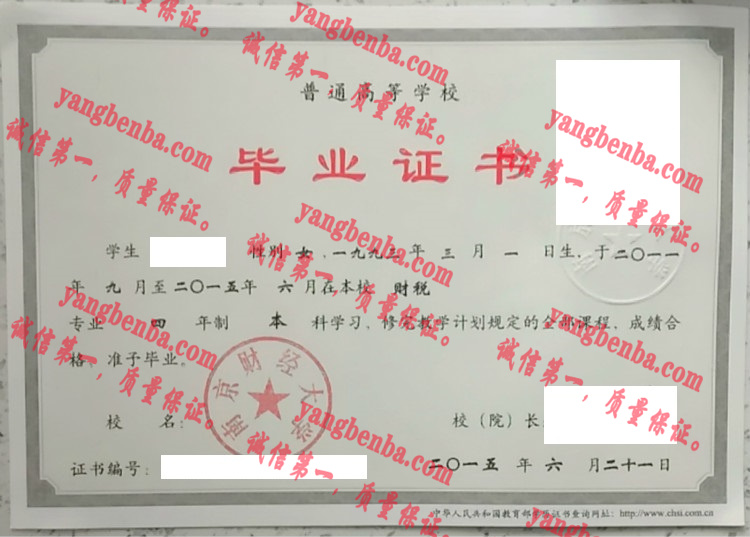 普通高等学校
毕业证书
学生 性别 女，一九九三年 三 月 一 日生，于二〇一一
年 九 月至二〇一五年 六 月在本校 财税
专业 四 年制 本 科学习，修完教学计划规定的全部课程，成绩合
格，准予毕业。
校 名：
南京财经大学
校（院）长
证书编号：
二〇一五 年 六 月二十一日
中华人民共和国教育部学历证书查询网址：http://www.chsi.com.cn
yangbenba.com
诚信第一，质量保证。
yangbenba.com
诚信第一，质量保证。
yangbenba.com
诚信第一，质量保证。
yangbenba.com
诚信第一，质量保证。
yangbenba.com
诚信第一，质量保证。
yangbenba.com
诚信第一，质量保证。
yangbenba.com
诚信第一，质量保证。
yangbenba.com
诚信第一，质量保证。
yangbenba.com
诚信第一，质量保证。
yangbenba.com